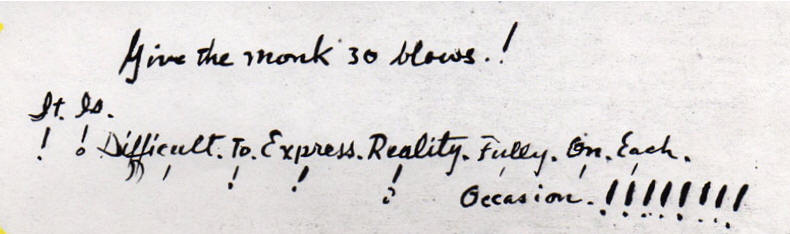 Give the monk 30 blows.!
It. Is.
! ! Difficult. To. Express. Reality. Fully. On. Each.
! ! ! ! Occasion. !!!!!!!!